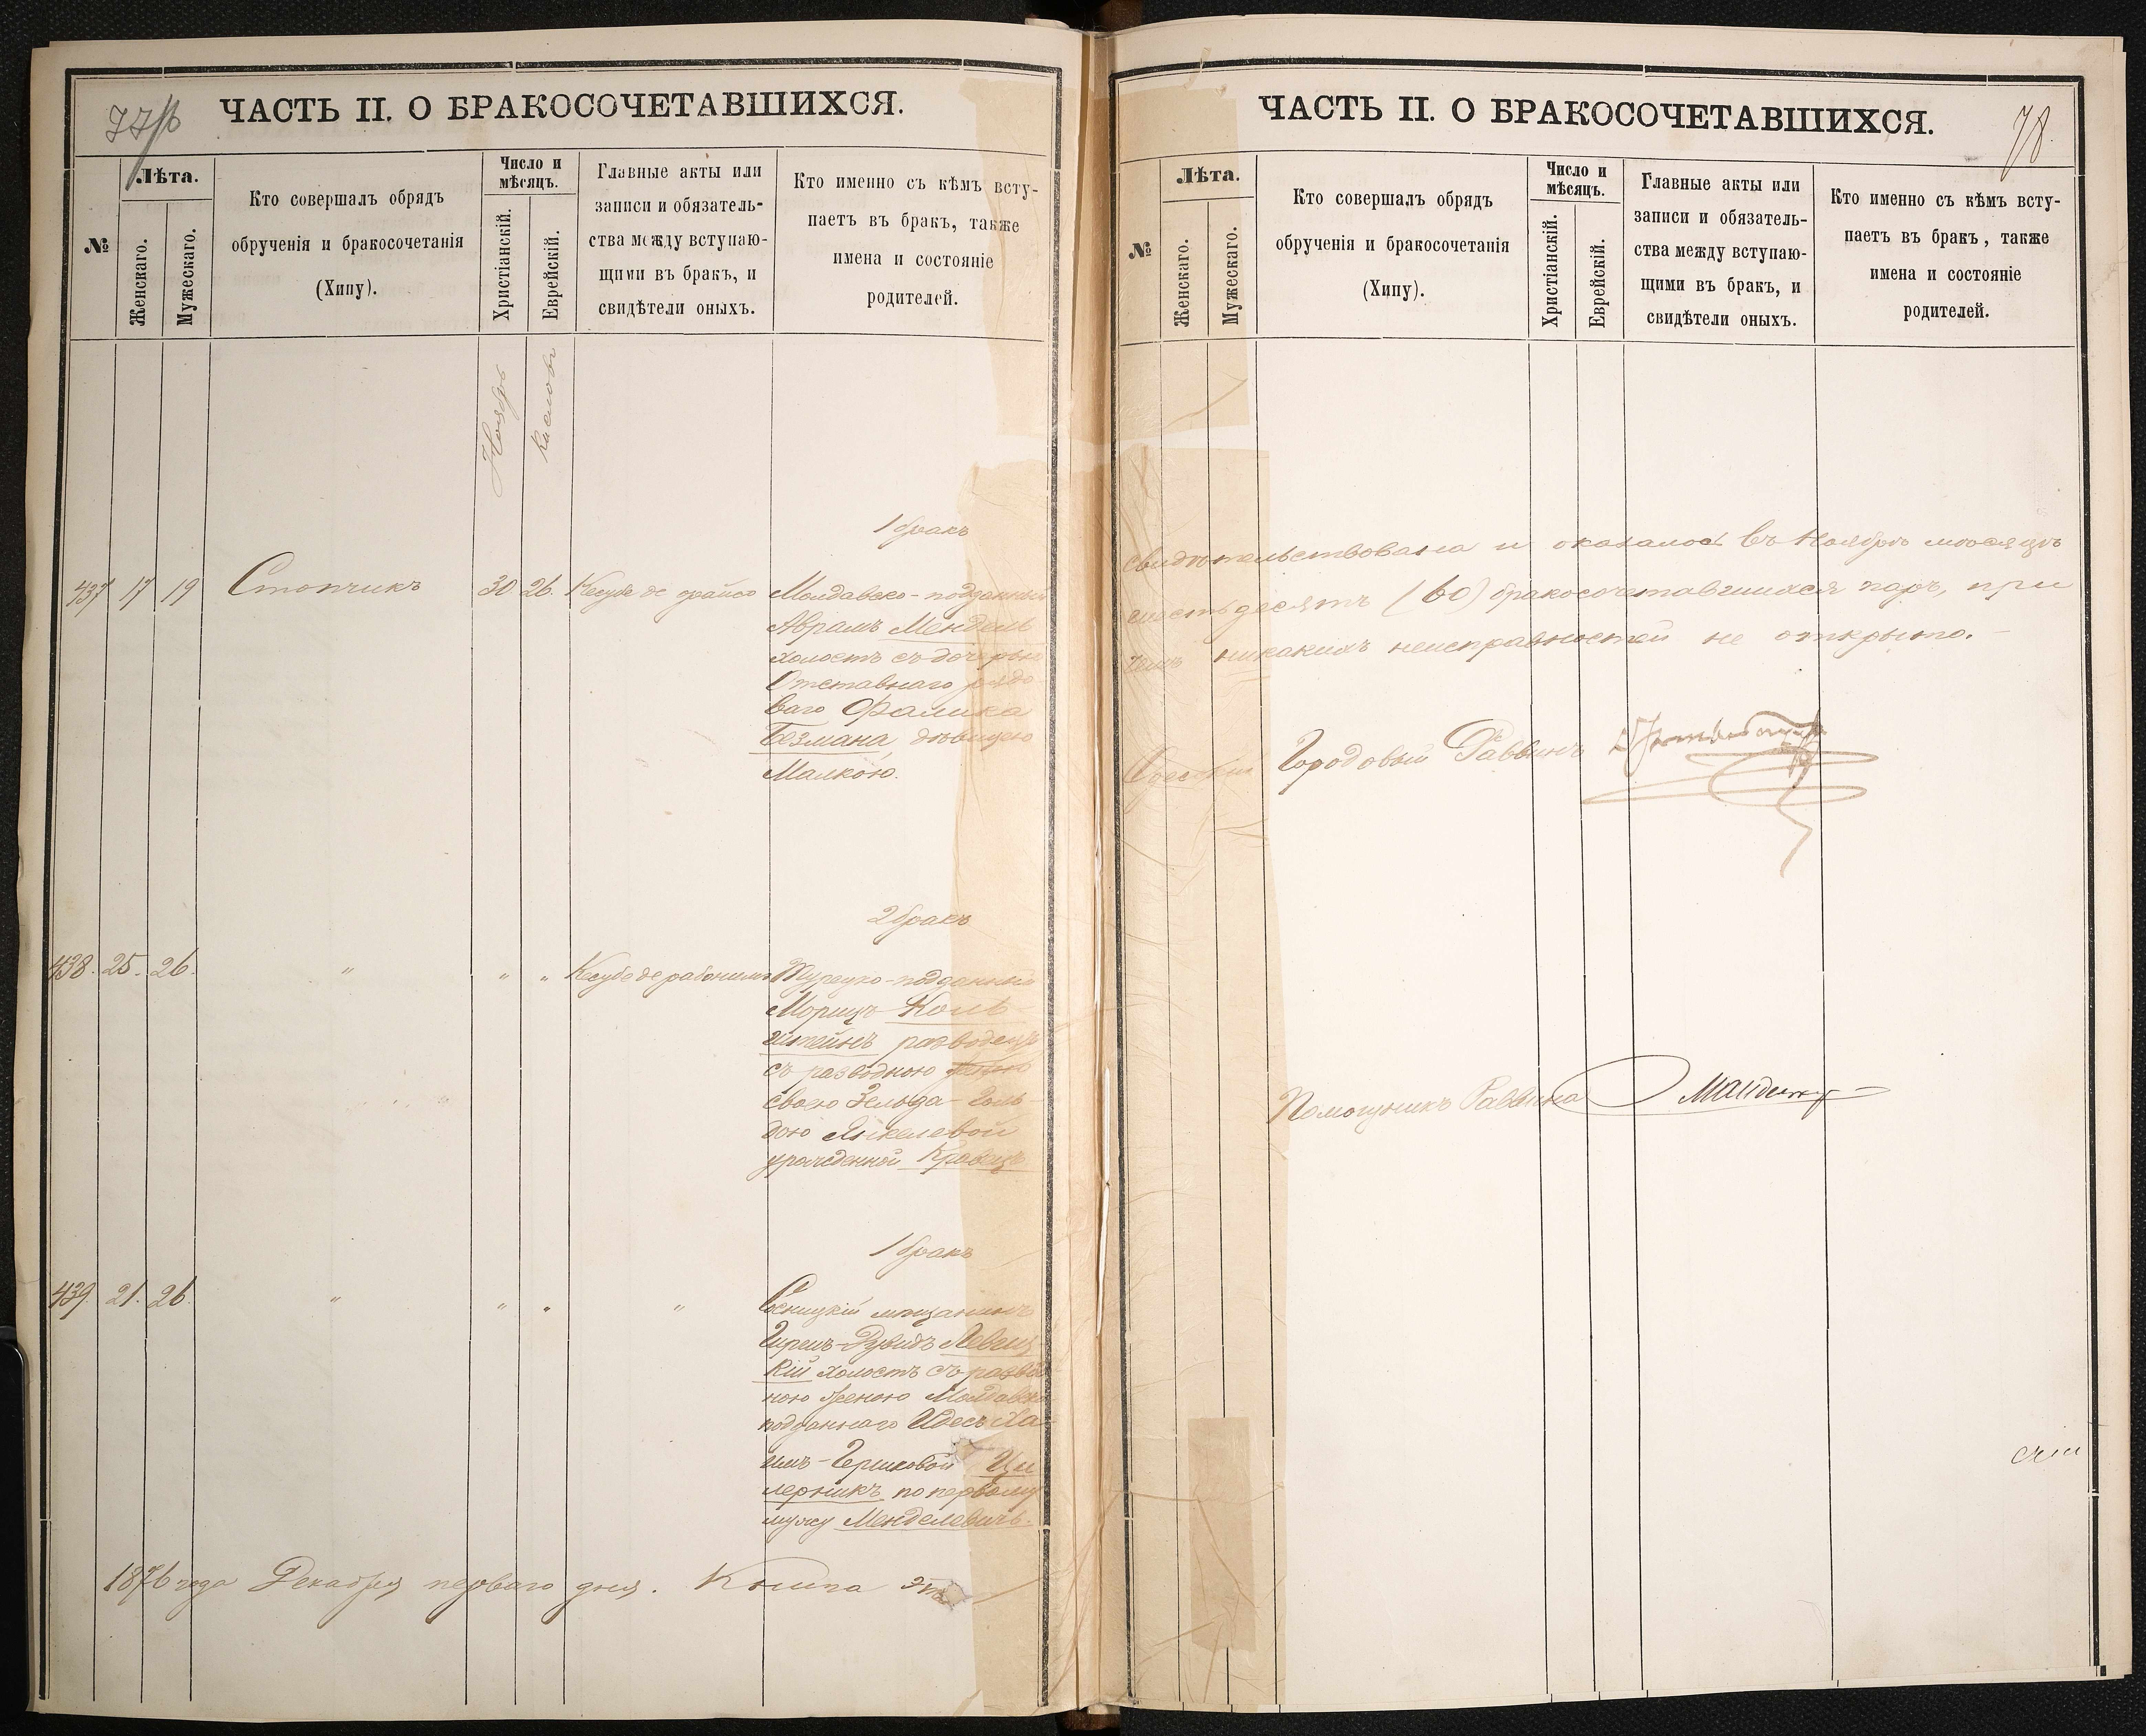 77/б
ЧАСТЬ II. О БРАКОСОЧЕТАВШИХСЯ.
№
Лѣта.
Женскаго.
Мужескаго.
Кто совершалъ обрядъ
обрученія и бракосочетанія
(Хипу).
Число и
мѣсяцъ.
Христіанскій.
Еврейскій.
Главные акты или
записи и обязатель-
ства между вступаю-
щими въ бракъ, и
свидѣтели оныхъ.
Кто именно съ кѣмъ всту-
паетъ въ бракъ, также
имена и состояніе
родителей.
Ноябрь
Кислевъ
1 бракъ
437 17 19 Стопчикъ 30 26. Кесубе де орайсо Молдавско-подданный
Аврамъ Мендель
холостъ съ дочерью
Отставнаго рядо-
ваго Фалика
Безмана дѣвицею
Малкою.
2 бракъ
438. 25. 26. " " " Кесубе де рабонимъ Турецко-подданный
Морицъ Коль-
штейнъ разводецъ
съ разводною женою
своею Зельда-Голь-
дою Янкелевой
урожденной Кравецъ
1 бракъ
439. 21. 26. " " " " Сосницкій мѣщанинъ
Гиршъ-Дувидъ Левиц-
кій холостъ съ развод
ною женою Молдавско
подданнаго Идесъ Ха-
Гершковой Ци
лерникъ по первому
мужу Менделевичъ.
1876 года Декабря перваго дня. Книга эта
ЧАСТЬ II. О БРАКОСОЧЕТАВШИХСЯ.
78.
№
Лѣта.
Женскаго.
Мужескаго.
Кто совершалъ обрядъ
обрученія и бракосочетанія
(Хипу).
Число и
мѣсяцъ.
Христіанскій.
Еврейскій.
Главные акты или
записи и обязатель-
ства между вступаю-
щими въ бракъ, и
свидѣтели оныхъ.
Кто именно съ кѣмъ всту-
паетъ въ бракъ, также
имена и состояніе
родителей.
свидѣтельствована и оказалось въ Ноябрѣ мѣсяцѣ
шестьдесятъ (60) бракосочетавшихся паръ, при
чемъ никакихъ неисправностей не открыто.
Одесскій Городовый Раввинъ
Помощникъ Раввина